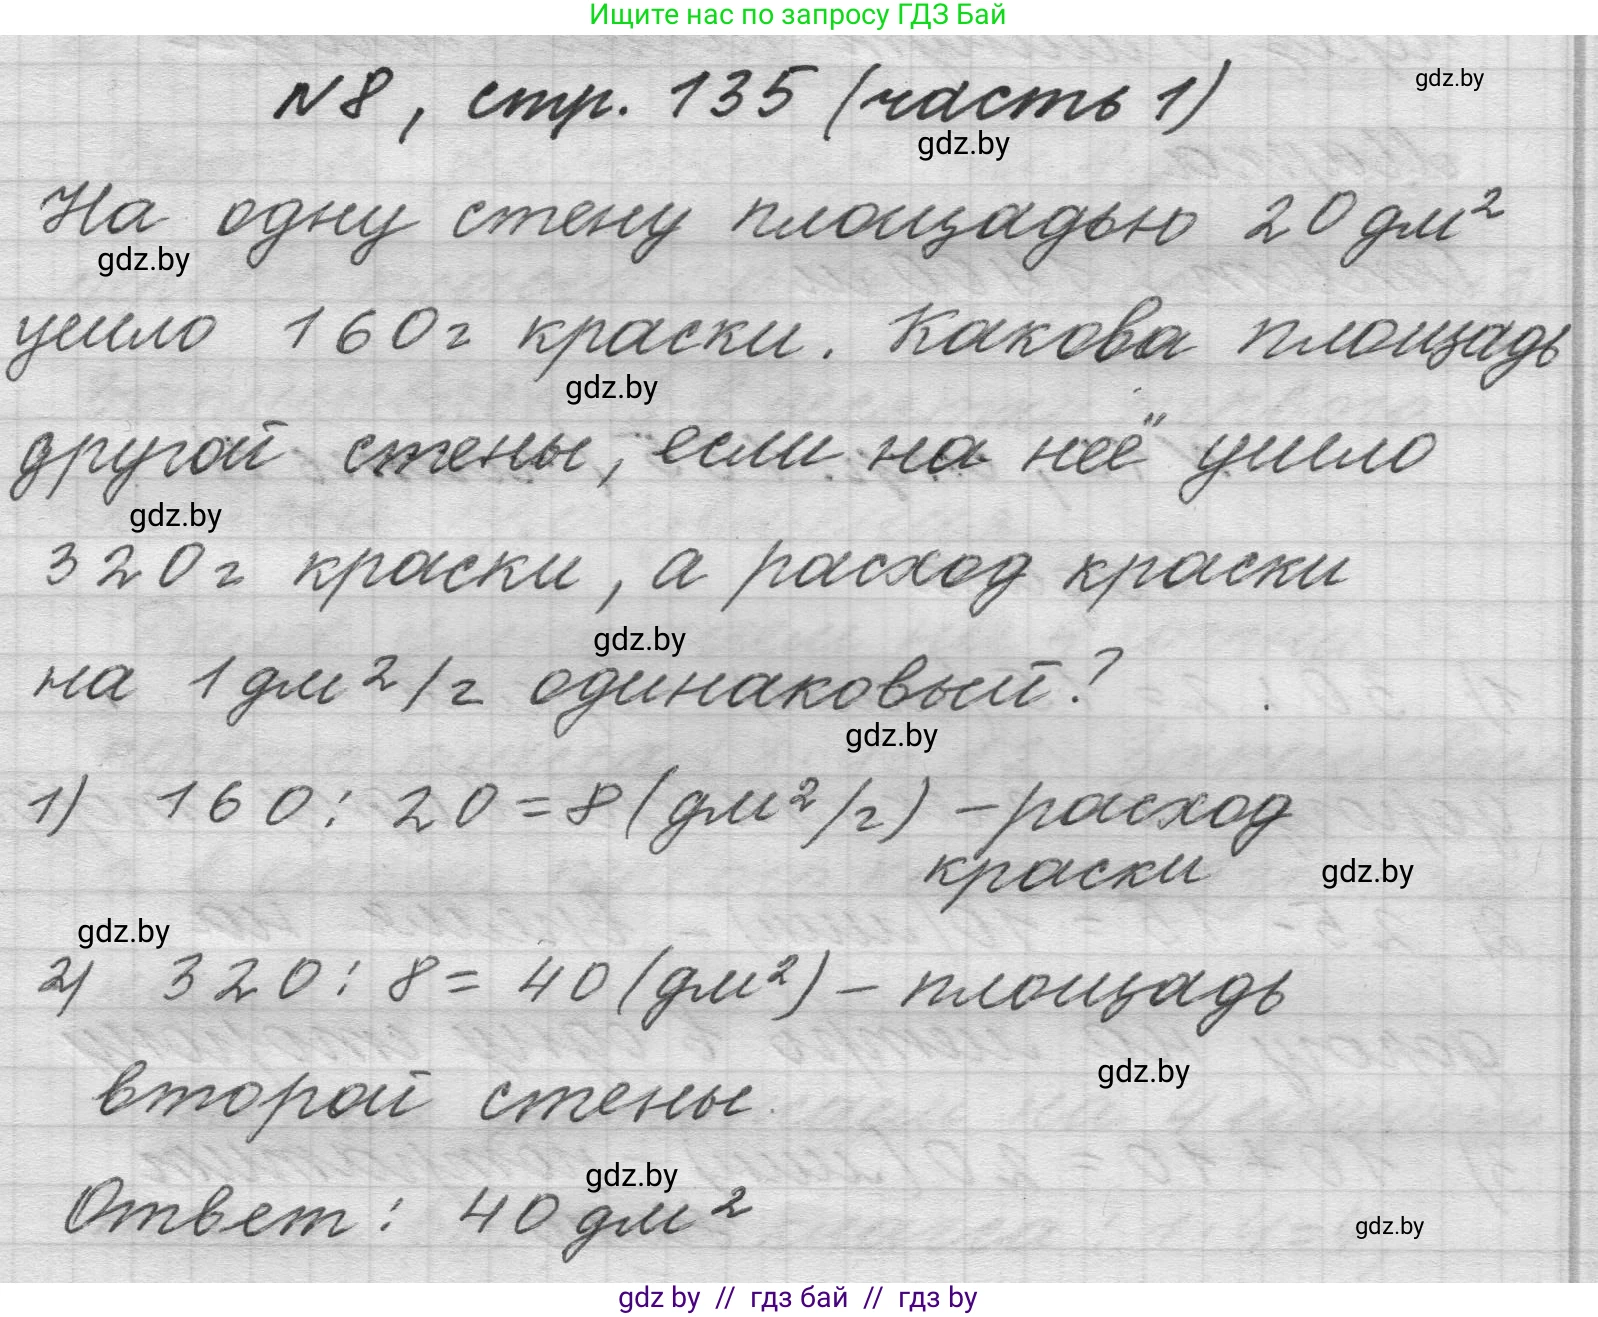 Ищите нас по запросу ГДЗ Бай
№8, стр. 135 (часть 1)
gdz.by
gdz.by
На одну стену площадью 20 дм²
gdz.by
ушло 160 г краски. Какова площадь
gdz.by
другой стены, если на неё ушло
gdz.by
320 г краски, а расход краски
gdz.by
на 1 дм²/г одинаковый?
gdz.by
1) 160 : 20 = 8 (дм²/г) – расход
краски
gdz.by
gdz.by
2) 320 : 8 = 40 (дм²) – площадь
gdz.by
второй стены.
gdz.by
Ответ: 40 дм²
gdz.by
gdz by // гдз бай // гдз by